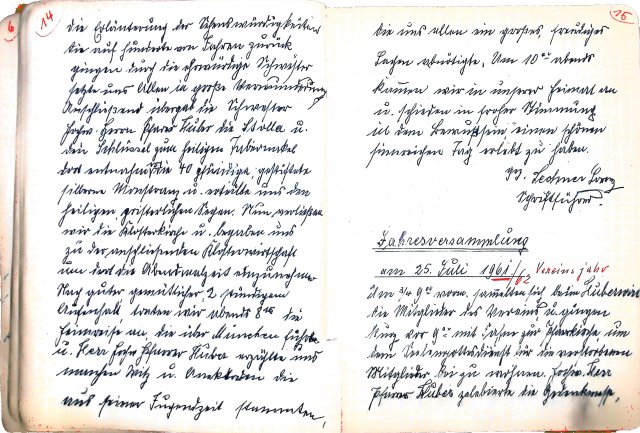 6
14
die Erläuterung der Sehenswürdigkeiten
die auf hunderte von Jahren zurück
gingen durch die ehrwürdige Schwester
setzte uns Allen in große Verwunderung
Anschließend übergab die Schwester
Hochw. Herrn Pfarrer Huber die Stolla u.
den Schlüssel zum heiligen Tabernakel
dort entnahm er die 40 pfündige, gestiftete
silberne Monstranz u. erteilte uns den
heiligen, priesterlichen Segen. Nun verließen
wir die Klosterkirche u. begaben uns
zu der anschließenden Klosterwirtschaft
um dort die Abendmalzeit einzunehmen.
Nach guter gemütlicher, 2 stündigem
Aufenhalt traten wir abends 8 die
Heimreise an, die über München führte
u. Herr Hochw. Pfarrer Huber erzählte uns
manchen Witz u. Anekdoten die
aus seiner Jugendzeit stammten,
15
die uns allen ein großes, freudiges
Lachen abnötigte. Um 10 abends
kammen wir in unserer Heimat an
u. schieden in froher Stimmung
in dem Bewußtsein einen schönen
sinnreichen Tag erlebt zu haben.
Lechner
Schriftführer
Jahresversammlung
am 25. Juli 1961/62 Vereinsjahr
Um 3/4 9 vorm. sammelten sich beim Huberwirt
die Mitglieder des Vereins u. gingen
kurz vor 9 mit Fahne zur Pfarrkirche, um
dem Seelengottesdienst für die verstorbenen
Mitglieder bei zu wohnen. Hochw. Herr
Pfarrer Huber zelebrierte die Gedenkmesse,